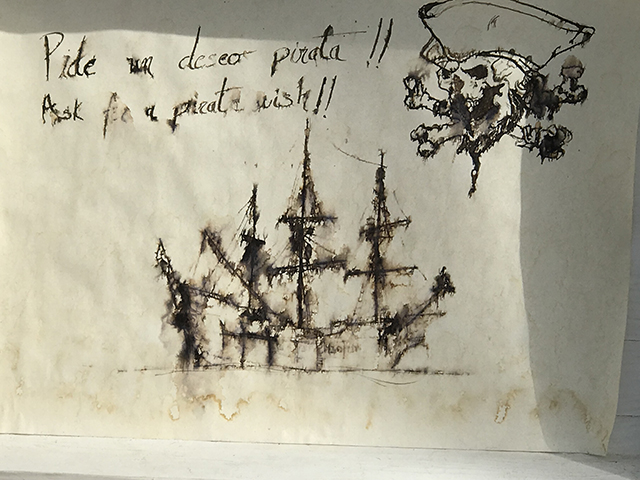 Pide un deseo pirata !!
Ask for a pirate wish!!